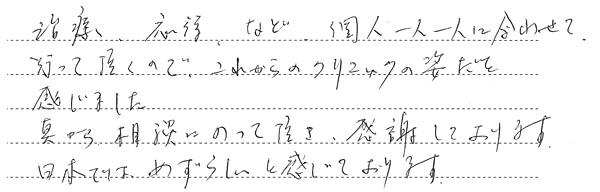 治療、応待、など、個人一人一人に合わせて、
行って頂くので、これからのクリニックの姿だと
感じました
真から相談にのって頂き、感謝しております。
日本では、めずらしいと感じております。